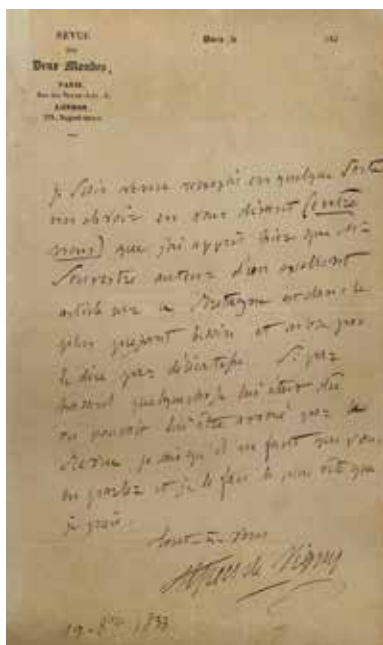 REVUE
DES
Deux Mondes,
PARIS,
LONDON,
Paris, le 183
je crois remplir en quelque sorte
un devoir en vous disant (entre
nous) que j'ai appris hier que Mr
Souvestre auteur d'un excellent
article sur la Bretagne est dans le
plus pressant besoin et n'ose pas
le dire par délicatesse. Si par
hasard quelque chose lui était dû
ou pouvait lui être avancé par la
Revue, je sais qu'il ne faut que vous
en parler et je le fais le plus vite que
je puis.
tout à vous
Alfred de Vigny
19 8bre 1833